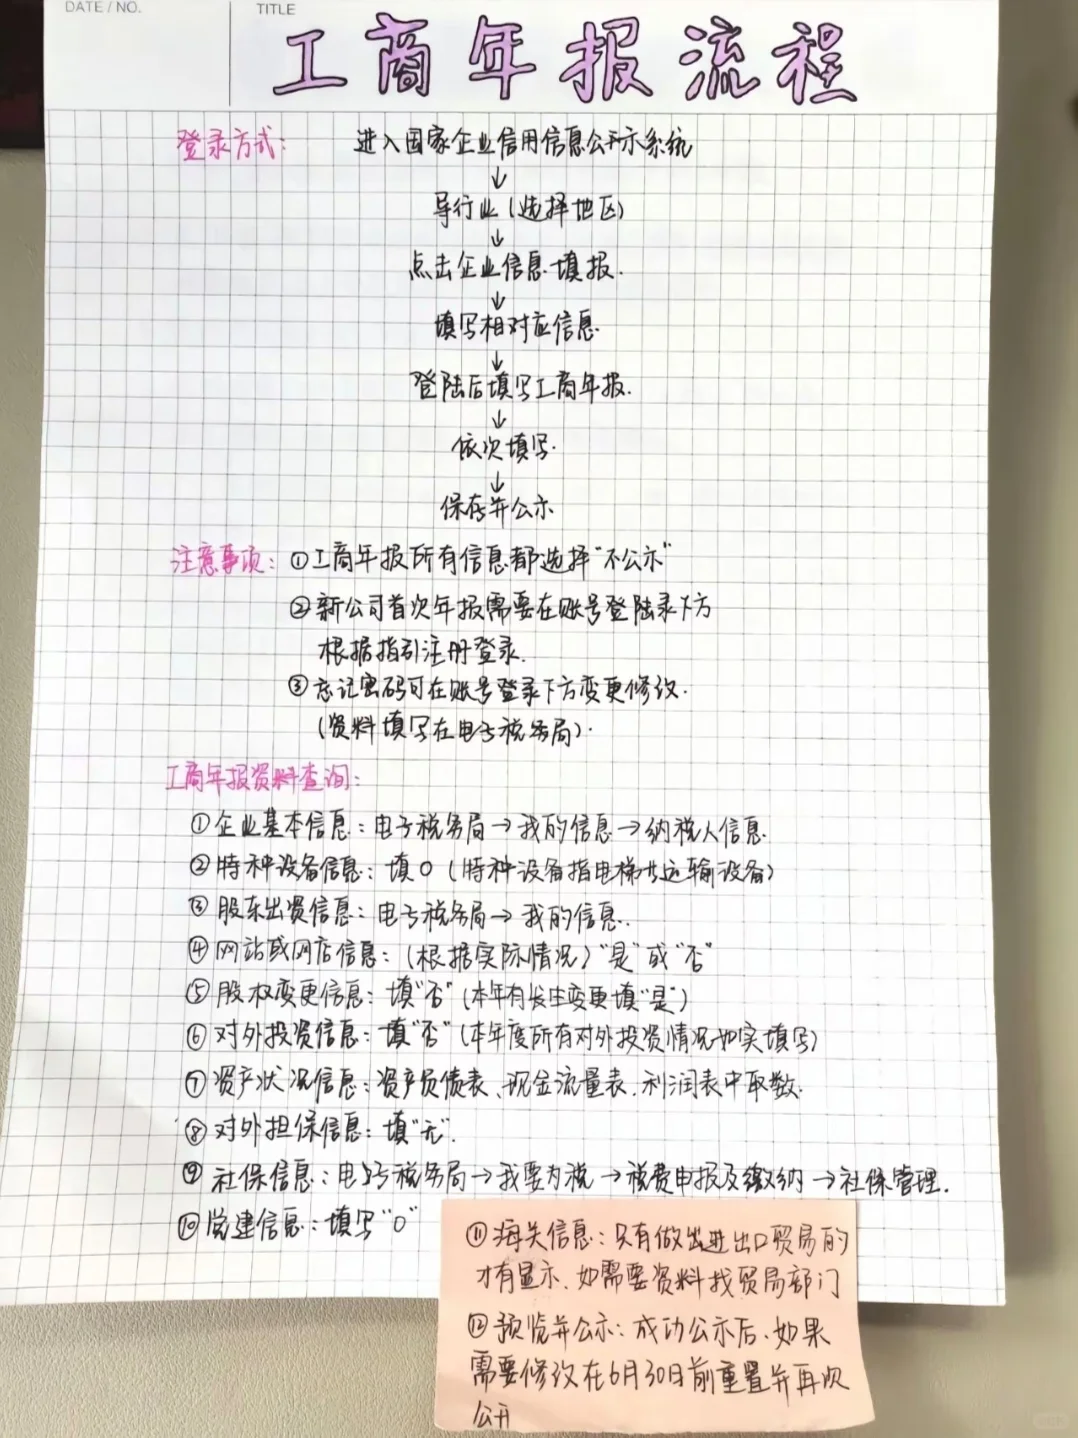 DATE / NO.
TITLE
工商年报流程
登录方式: 进入国家企业信用信息公开示系统
↓
导行业(选择地区)
↓
点击企业信息填报.
↓
填写相对应信息.
↓
登陆后填写工商年报.
↓
依次填写.
↓
保存并公示
注意事项: ①工商年报所有信息都选择"不公示"
②新公司首次年报需要在账号登陆录下方
根据指引注册登录.
③忘记密码可在账号登录下方变更修改.
(资料填写在电子税务局).
工商年报资料查询:
①企业基本信息: 电子税务局→我的信息→纳税人信息.
②特种设备信息: 填0 (特种设备指电梯廿运输设备)
③股东出资信息: 电子税务局→我的信息.
④网站或网店信息: (根据实际情况)"是"或"否"
⑤股权变更信息: 填"否"(本年有发生变更填"是")
⑥对外投资信息: 填"否"(本年度所有对外投资情况如实填写)
⑦资产状况信息: 资产负债表、现金流量表、利润表中取数.
⑧对外担保信息: 填"无".
⑨社保信息: 电子税务局→我要办税→税费申报及缴纳→社保管理.
⑩党建信息: 填写"0"
⑪海关信息: 只有做出进出口贸易的
才有显示、如需要资料找贸易部门
⑫预览并公示: 成功公示后、如果
需要修改在6月30日前重置并再次
公开